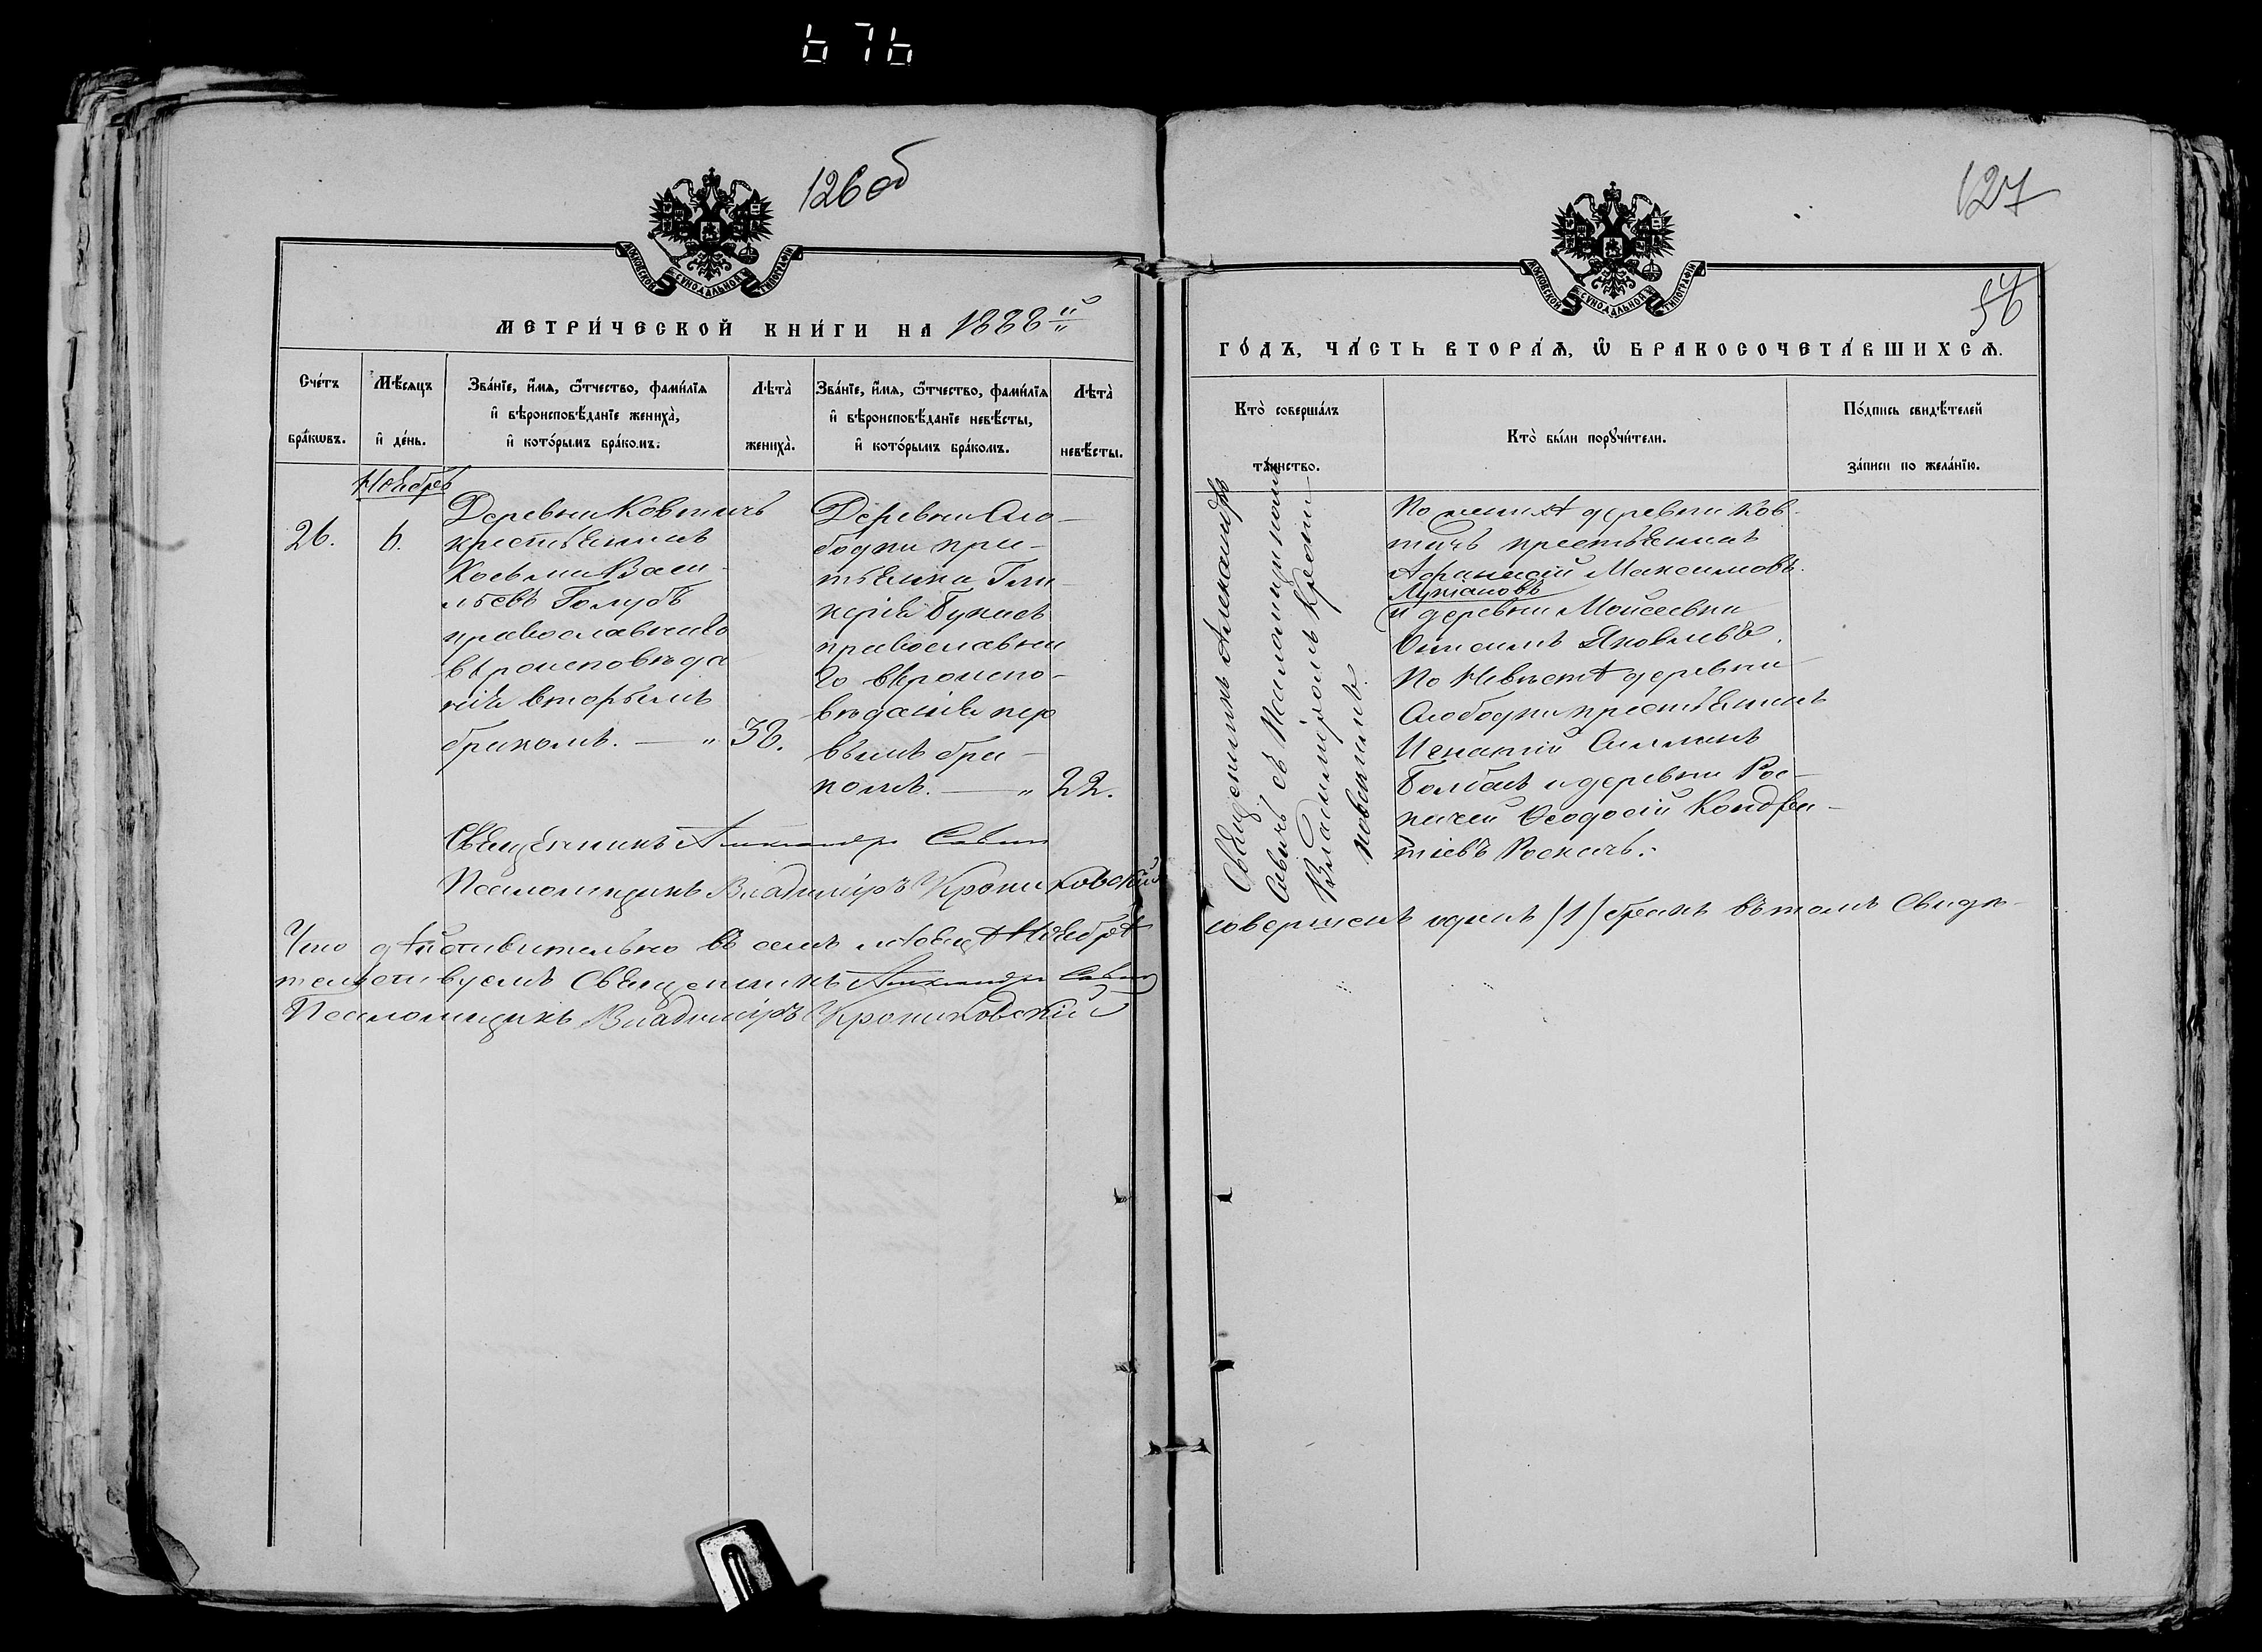 676
126об
МОСКОВСКОЙ СѴНОДАЛЬНОЙ ТИПОГРАФІИ
МЕТРИ́ЧЕСКОЙ КНИ́ГИ НА 1888й
Сче́тъ бра́кѡвъ.
Мѣ́сяцъ и҆ де́нь.
Зва́нїе, и҆́мѧ, ѻ҆́тчество, фами́лїѧ
и҆ вѣроисповѣ́данїе жениха̀,
и҆ кото́рымъ бра́комъ.
Лѣта̀ жениха̀.
Зва́нїе, и҆́мѧ, ѻ҆́тчество, фами́лїѧ
и҆ вѣроисповѣ́данїе невѣ́сты,
и҆ кото́рымъ бра́комъ.
Лѣта̀ невѣ́сты.
Ноябрь
26.
6.
Деревни Ковтичъ
крестьянинъ
Косьма Васи-
льевъ Голубъ
православнаго
вѣроисповѣда
нія вторымъ
бракомъ. — „
38.
Деревни Сло-
бодки кре-
стьянка Гли-
керія
православна
го вѣроиспо-
вѣданія пер
вымъ бра-
комъ. — „
22.
Священникъ Александръ Савичъ
Псаломщикъ Владиміръ
Что дѣйствительно въ семъ мѣсяцѣ Ноябрѣ
тельствуемъ Священникъ Александръ Савичъ
Псаломщикъ Владиміръ
127
МОСКОВСКОЙ СѴНОДАЛЬНОЙ ТИПОГРАФІИ
ГО́ДЪ, ЧА́СТЬ ВТОРА́Ѧ, Ѡ҆ БРАКОСОЧЕТА́ВШИХСѦ.
Кто̀ соверша́лъ
та́инство.
Кто̀ бы́ли порꙋчи́тели.
По́дпись свидѣ́телей
за́писи по жела́нїю.
Священникъ Александръ
Савичъ съ Псаломщикомъ
Владиміромъ
По женихѣ деревни Ков-
тичъ крестьянинъ
Афанасій Максимовъ
и деревни Моисеевки
Яковлевъ.
По Невѣстѣ деревни
Слободки крестьянинъ
Игнатій
и деревни Рос-
Ѳеодосій Кондра-
тіевъ
совершенъ одинъ (1) бракъ въ томъ Свидѣ-